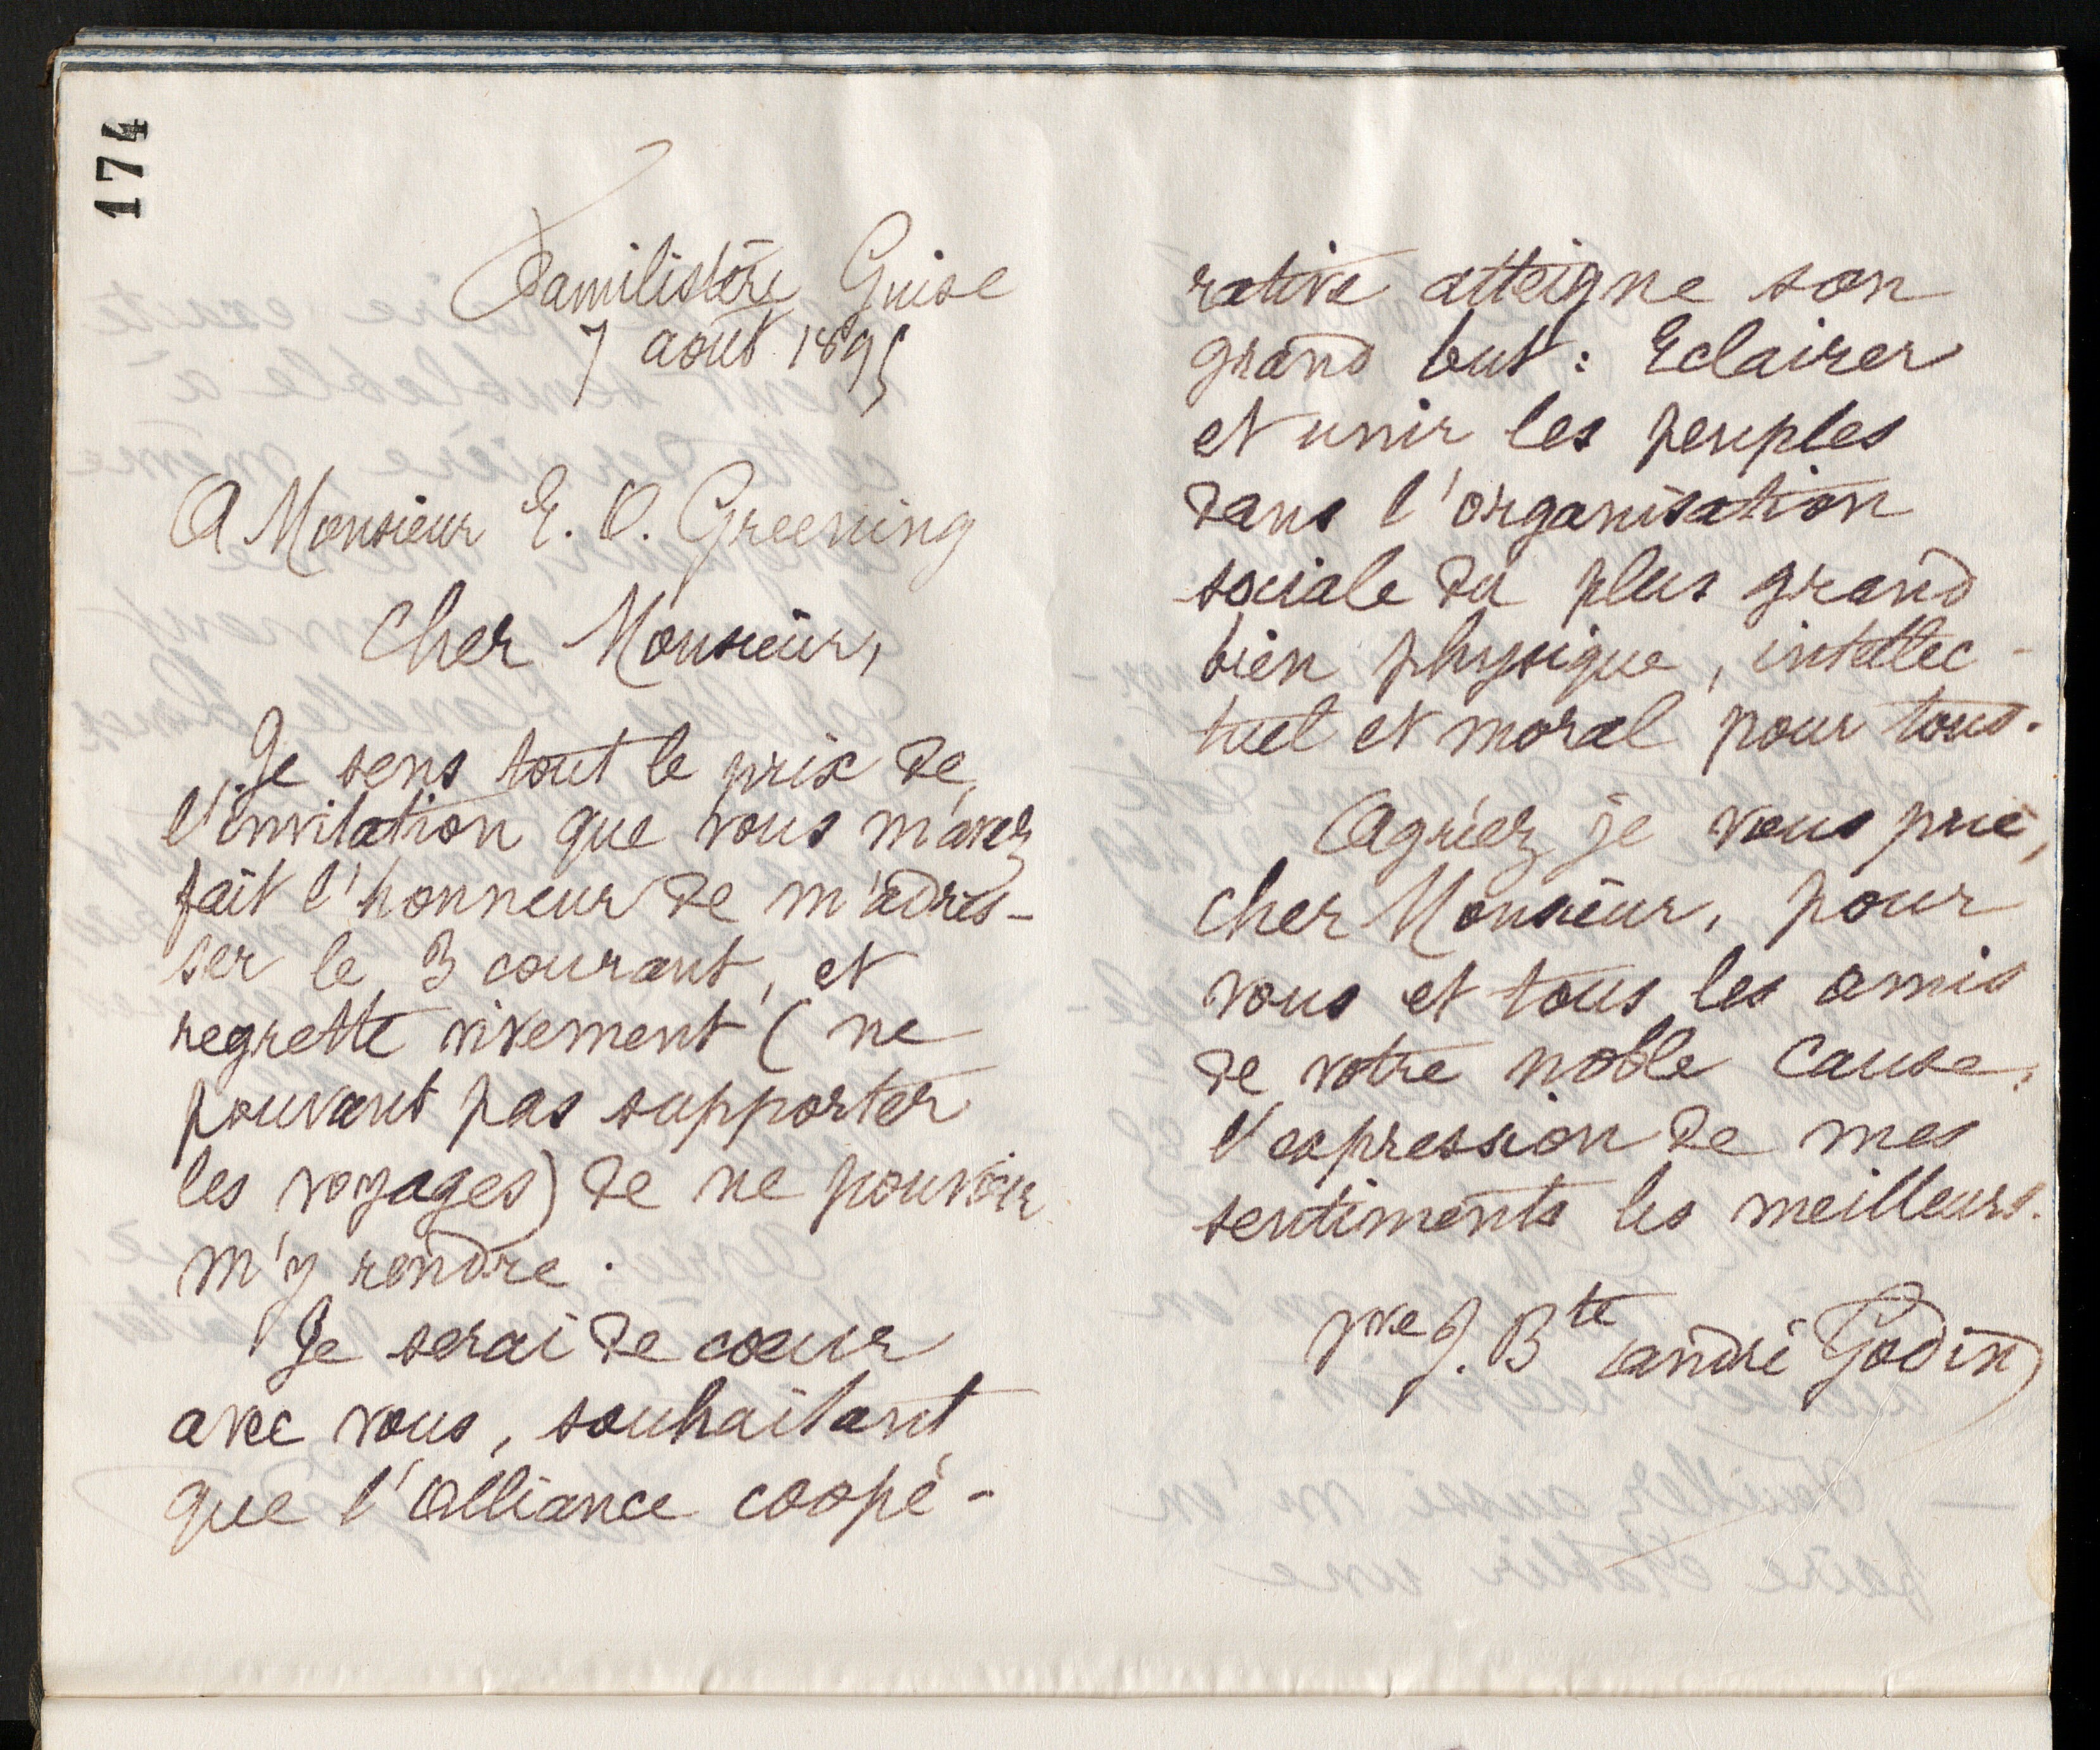 174
Familistère Guise
7 août 1895
A Monsieur E. O. Greening
Cher Monsieur,
Je sens tout le prix de
l'invitation que vous m'avez
fait l'honneur de m'adres-
ser le 3 courant, et
regrette vivement (ne
pouvant pas supporter
les voyages) de ne pouvoir
m'y rendre.
Je serai de cœur
avec vous, souhaitant
que l'Alliance coopé-
rative atteigne son
grand but : Eclairer
et unir les peuples
dans l'organisation
sociale du plus grand
bien physique, intellec-
tuel et moral pour tous.
Agréez je vous prie,
cher Monsieur, pour
vous et tous les amis
de votre noble cause,
l'expression de mes
sentiments les meilleurs.
Vve J. Bte André Godin